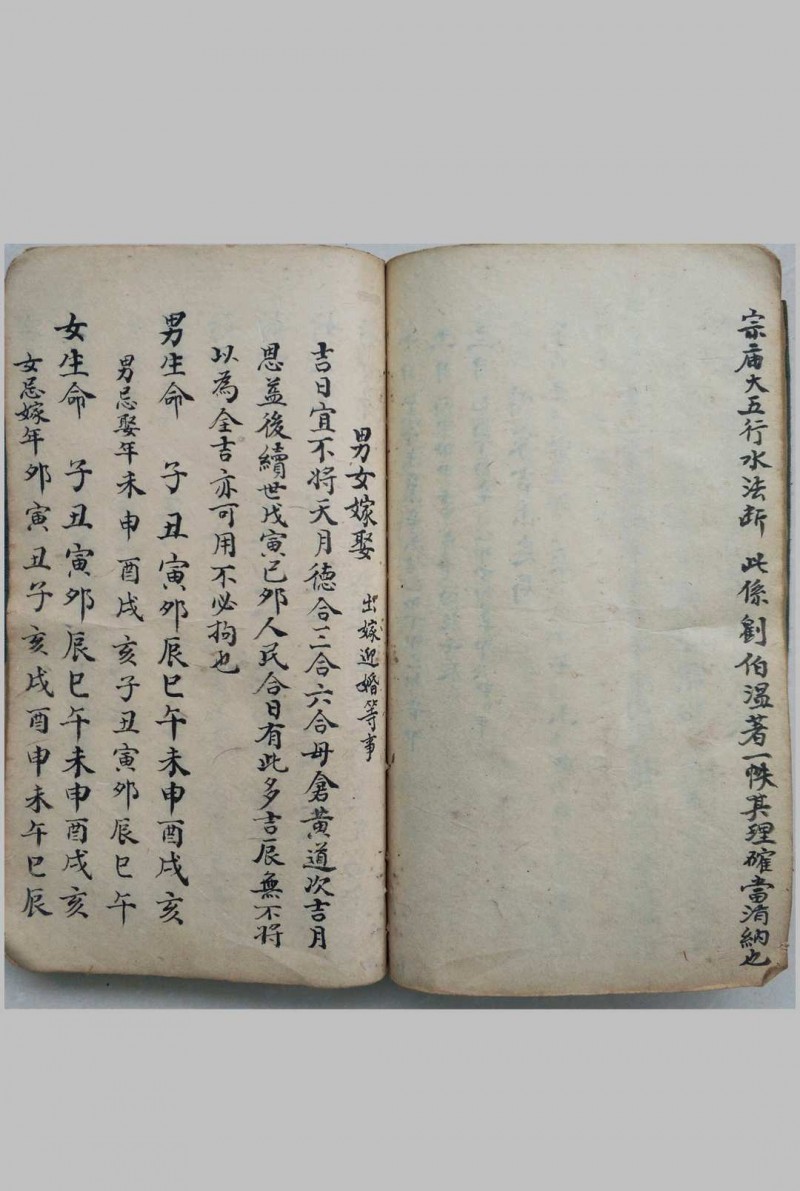 宗庙大五行水法断 此係劉伯温著一帙其理確當消納也
男女嫁娶 出嫁迎婚等事
吉日宜不将天月德合三合六合母倉黄道次吉月
恩益後續世戊寅己卯人民合日有此多吉辰無不将
以為全吉亦可用不必拘也
男生命 子丑寅卯辰巳午未申酉戌亥
男忌娶年未申酉戌亥子丑寅卯辰巳午
女生命 子丑寅卯辰巳午未申酉戌亥
女忌嫁年卯寅丑子亥戌酉申未午巳辰